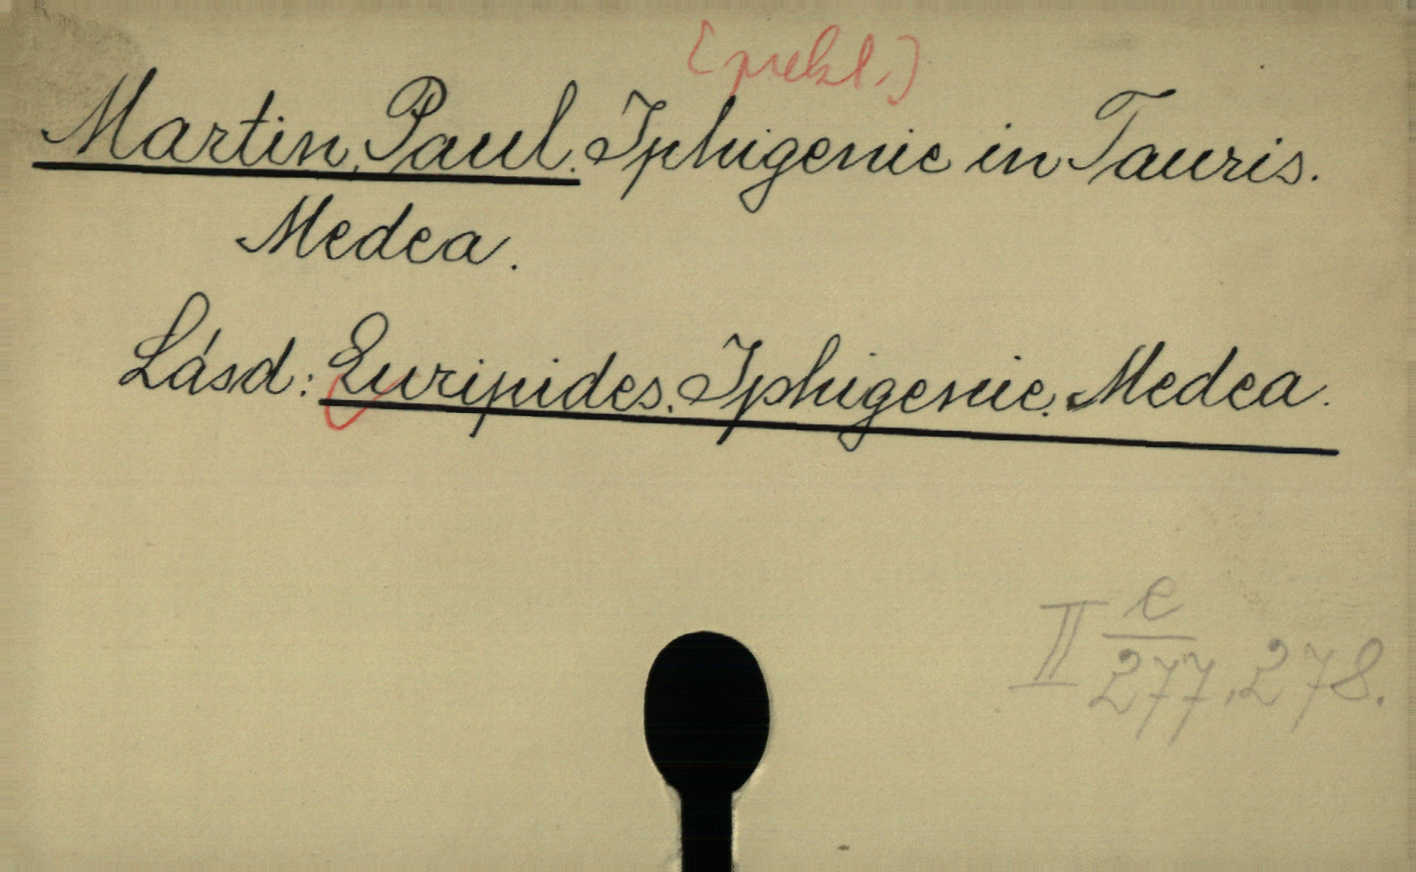 [prekl.]
Martin, Paul. Iphigenie in Tauris.
Medea.
Lásd: Euripides. Iphigenie. Medea.
II e/277, 278.